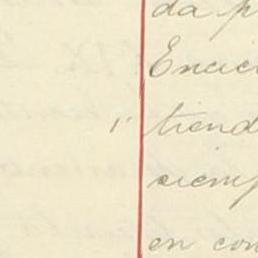 da p
Encic
" tiend
siemp
en con